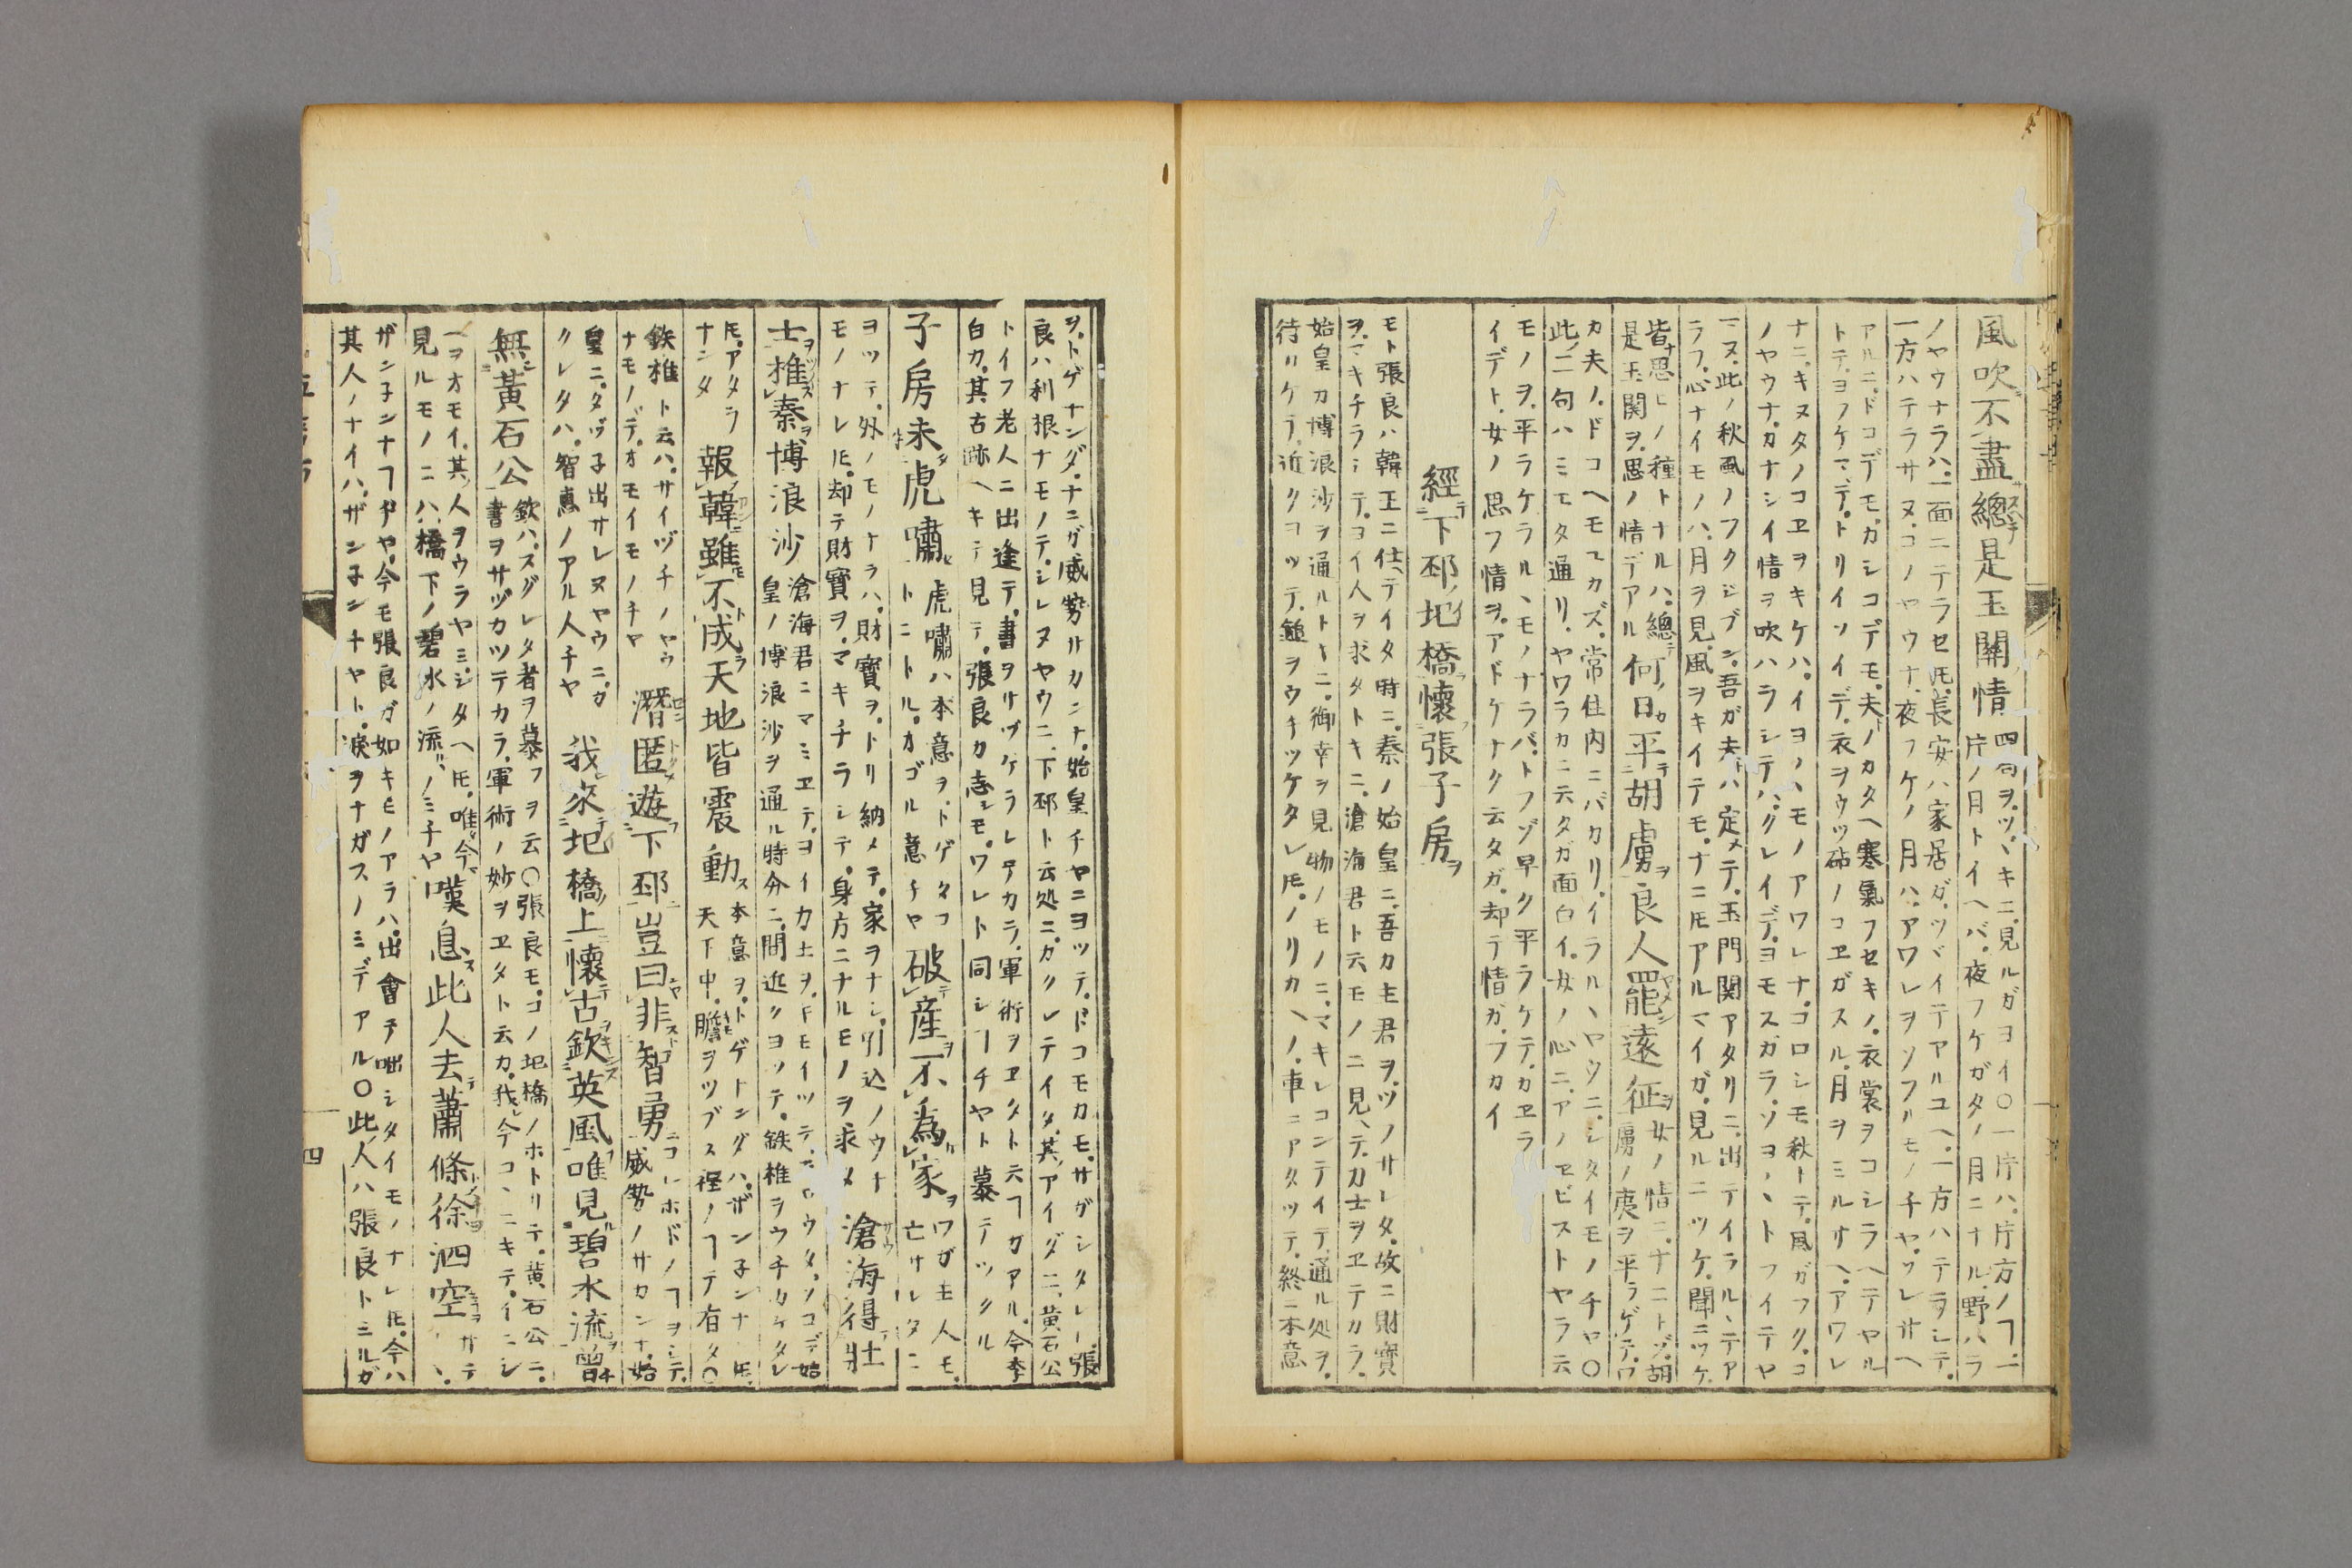 風吹不盡總是玉關情 四句ヲ、ツヽキニ、見ルガヨイ〇一片ハ、片方ノヿ、一
片ノ月トイヘバ、夜フケガタノ月ニナル、野ハラ
ノヤウナラハ、一面ニテラセ𪜈、長安ハ家居ガ、ツヾイテアルユヘ、一方ハテラシテ、
一方ハテラサヌ、コノヤウナ、夜フケノ月ハ、アワレヲソフルモノチヤ、ソレサヘ
アルニ、ドコデモ、カシコデモ、夫ノカタヘ寒氣フセキノ、衣裳ヲコシラヘテヤル
トテ、ヨフケマデ、トリイソイデ、衣ヲウツ砧ノコヱガスル、月ヲミルサヘ、アワレ
ナニ、キヌタノコヱヲキケハ、イヨヽヽモノアワレナ、コロシモ秋トテ、風ガフク、コ
ノヤウナ、カナシイ情ヲ吹ハラシテハ、クレイデ、ヨモスガラ、ソヨヽヽトフイテヤ
マヌ、此ノ秋風ノフクジブン、吾ガ夫ハ定メテ、玉門関アタリニ、出テイラルヽテア
ラフ、心ナイモノハ、月ヲ見、風ヲキイテモ、ナニ𪜈アルマイガ、見ルニツケ、聞ニツケ
皆思ヒノ種トナルハ、總テ
是玉関ヲ、思ノ情デアル 何日平胡虜良人罷遠征 女ノ情ニ、ナニトゾ、胡
虜ノ夷ヲ平ラゲテ、ワ
カ夫ノ、ドコヘモユカズ、常住内ニバカリ、イラルヽヤウニ、シタイモノチヤ〇
此ノ二句ハミモタ通リ、ヤワラカニ云タガ面白イ、女ノ心ニ、アノヱビストヤラ云
モノヲ、平ラケラルヽモノナラバ、トフゾ早ク平ラケテ、カヱラ
イデト、女ノ思フ情ヲ、アドケナク云タガ、却テ情ガ、フカイ
經下邳圯橋懷張子房
モト張良ハ韓王ニ仕ヘテイタ時ニ、秦ノ始皇ニ、吾カ主君ヲ、ツノサレタ、故ニ財寶
ヲ、マキチラシテ、ヨイ人ヲ求タトキニ、滄海君ト云モノニ見ヘテ、力士ヲヱテカラ、
始皇カ博浪沙ヲ通ルトキニ、御幸ヲ見物ノモノニ、マキレコンテイテ、通ル処ヲ、
待ウケテ、近クヨツテ、鎚ヲウキツケタレ𪜈、ノリカヘノ、車ニアタツテ、終ニ本意
ヲ、トゲナンダ、ナニガ威勢サカンナ、始皇チヤニヨツテ、ドコモカモ、サガシタレ𪜈、張
良ハ利根ナモノテ、シレヌヤウニ、下邳ト云処ニ、カクレテイタ、其アイダニ、黄石公
トイフ老人ニ出逢テ、書ヲサヅケラレテカラ、軍術ヲヱタト云ヿガアル、今李
白カ、其古跡ヘキテ見テ、張良カ志シモ、ワレト同シヿチヤト慕テツクル
子房未虎嘯 虎嘯ハ本意ヲ、トゲタコ
トニトル、カゴル意チヤ 破産不為家 ワガ主人モ、
亡サレタニ
ヨツテ、外ノモノナラハ、財寶ヲ、トリ納メテ、家ヲナシ、引込ノウナ
モノナレ𪜈、却テ財寶ヲ、マキチラシテ、身方ニナルモノヲ求メ 滄海得壯
士椎秦博浪沙 滄海君ニマミヱテ、ヨイ力士ヲ、
皇ノ博浪沙ヲ通ル時分ニ、間近クヨツテ、鉄椎ヲウチカケタレ
𪜈、アタラ
ナンタ 報韓雖不成天地皆震動 本意ヲ、トゲナンダハ、ザン子ンナ𪜈、
天下中、膽ヲツブス程ノヿテ有タ〇
鉄椎ト云ハ、サイヅチノヤウ
ナモノデ、オモイモノチヤ 潛匿遊下邳豈曰非智勇 コレホドノヿヲシテ、
威勢ノサカンナ、始
皇ニ、タヅ子出サレヌヤウニ、カ
クレタハ、智恵ノアル人チヤ 我來圯橋上懷古欽英風唯見碧水流曽
無黃石公 欽ハ、スグレタ者ヲ慕フヲ云〇張良モ、コノ圯橋ノホトリテ、黄石公ニ、
書ヲサヅカツテカラ、軍術ノ妙ヲヱタト云カ、我レ今コヽニキテ、イニシ
ヘヲオモイ、其人ヲウラヤミ、シタヘ𪜈、唯今
見ルモノニハ、橋下ノ碧水ノ流ルヽノミチヤ 嘆息此人去蕭條徐泗空 サテ
ヽ、
ザン子ンナヿヂヤ、今モ張良ガ如キモノアラハ、出會テ咄シタイモノナレ𪜈、今ハ
其人ノナイハ、ザン子ンチヤト、淚ヲナガスノミデアル〇此人ハ張良トミルガ
四